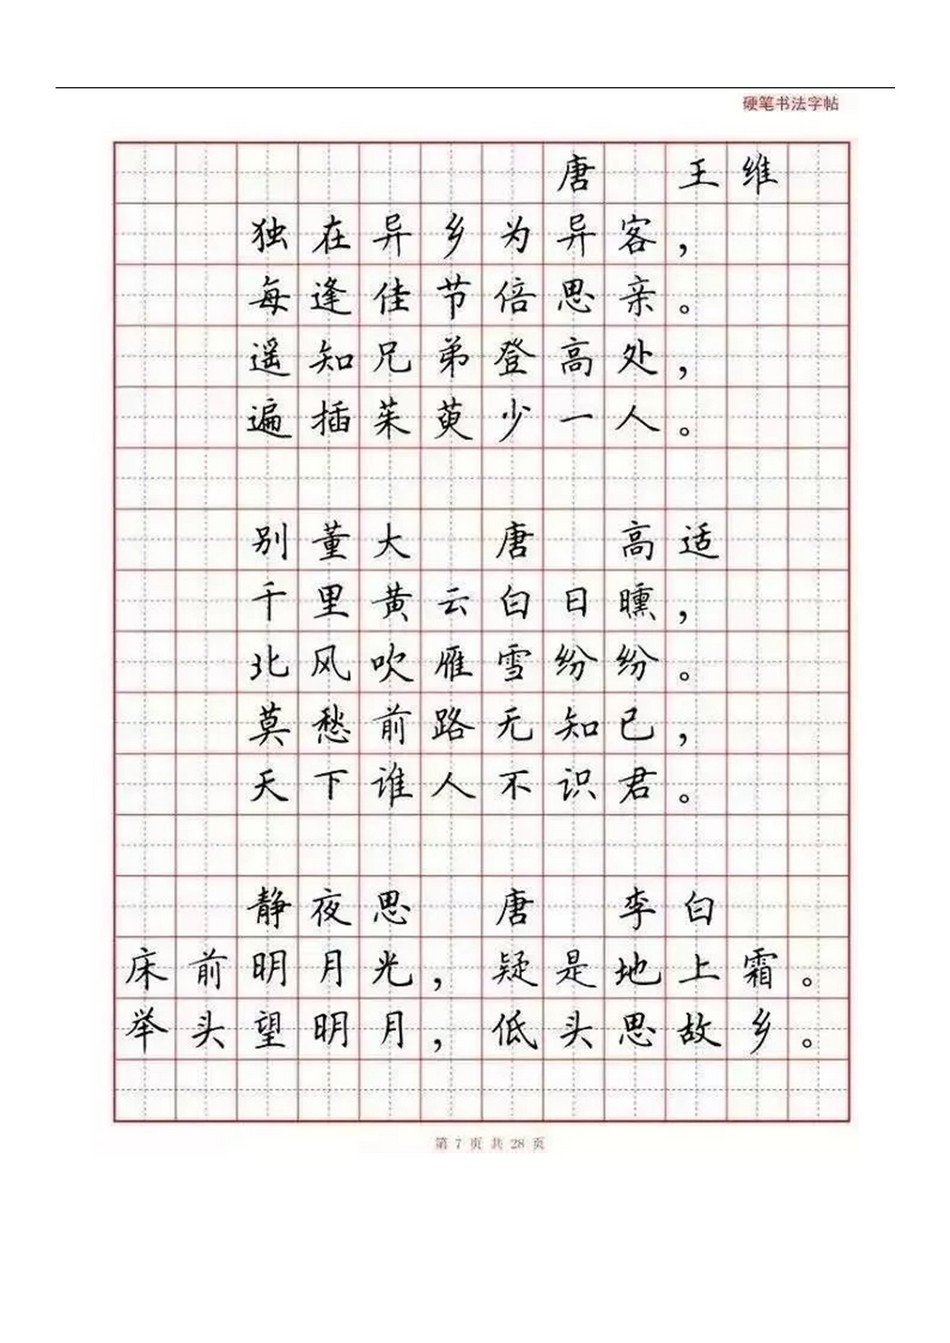 硬笔书法字帖
唐 王维
独在异乡为异客，
每逢佳节倍思亲。
遥知兄弟登高处，
遍插茱萸少一人。
别董大 唐 高适
千里黄云白日曛，
北风吹雁雪纷纷。
莫愁前路无知已，
天下谁人不识君。
静夜思 唐 李白
床前明月光，疑是地上霜。
举头望明月，低头思故乡。
第 7 页 共 28 页